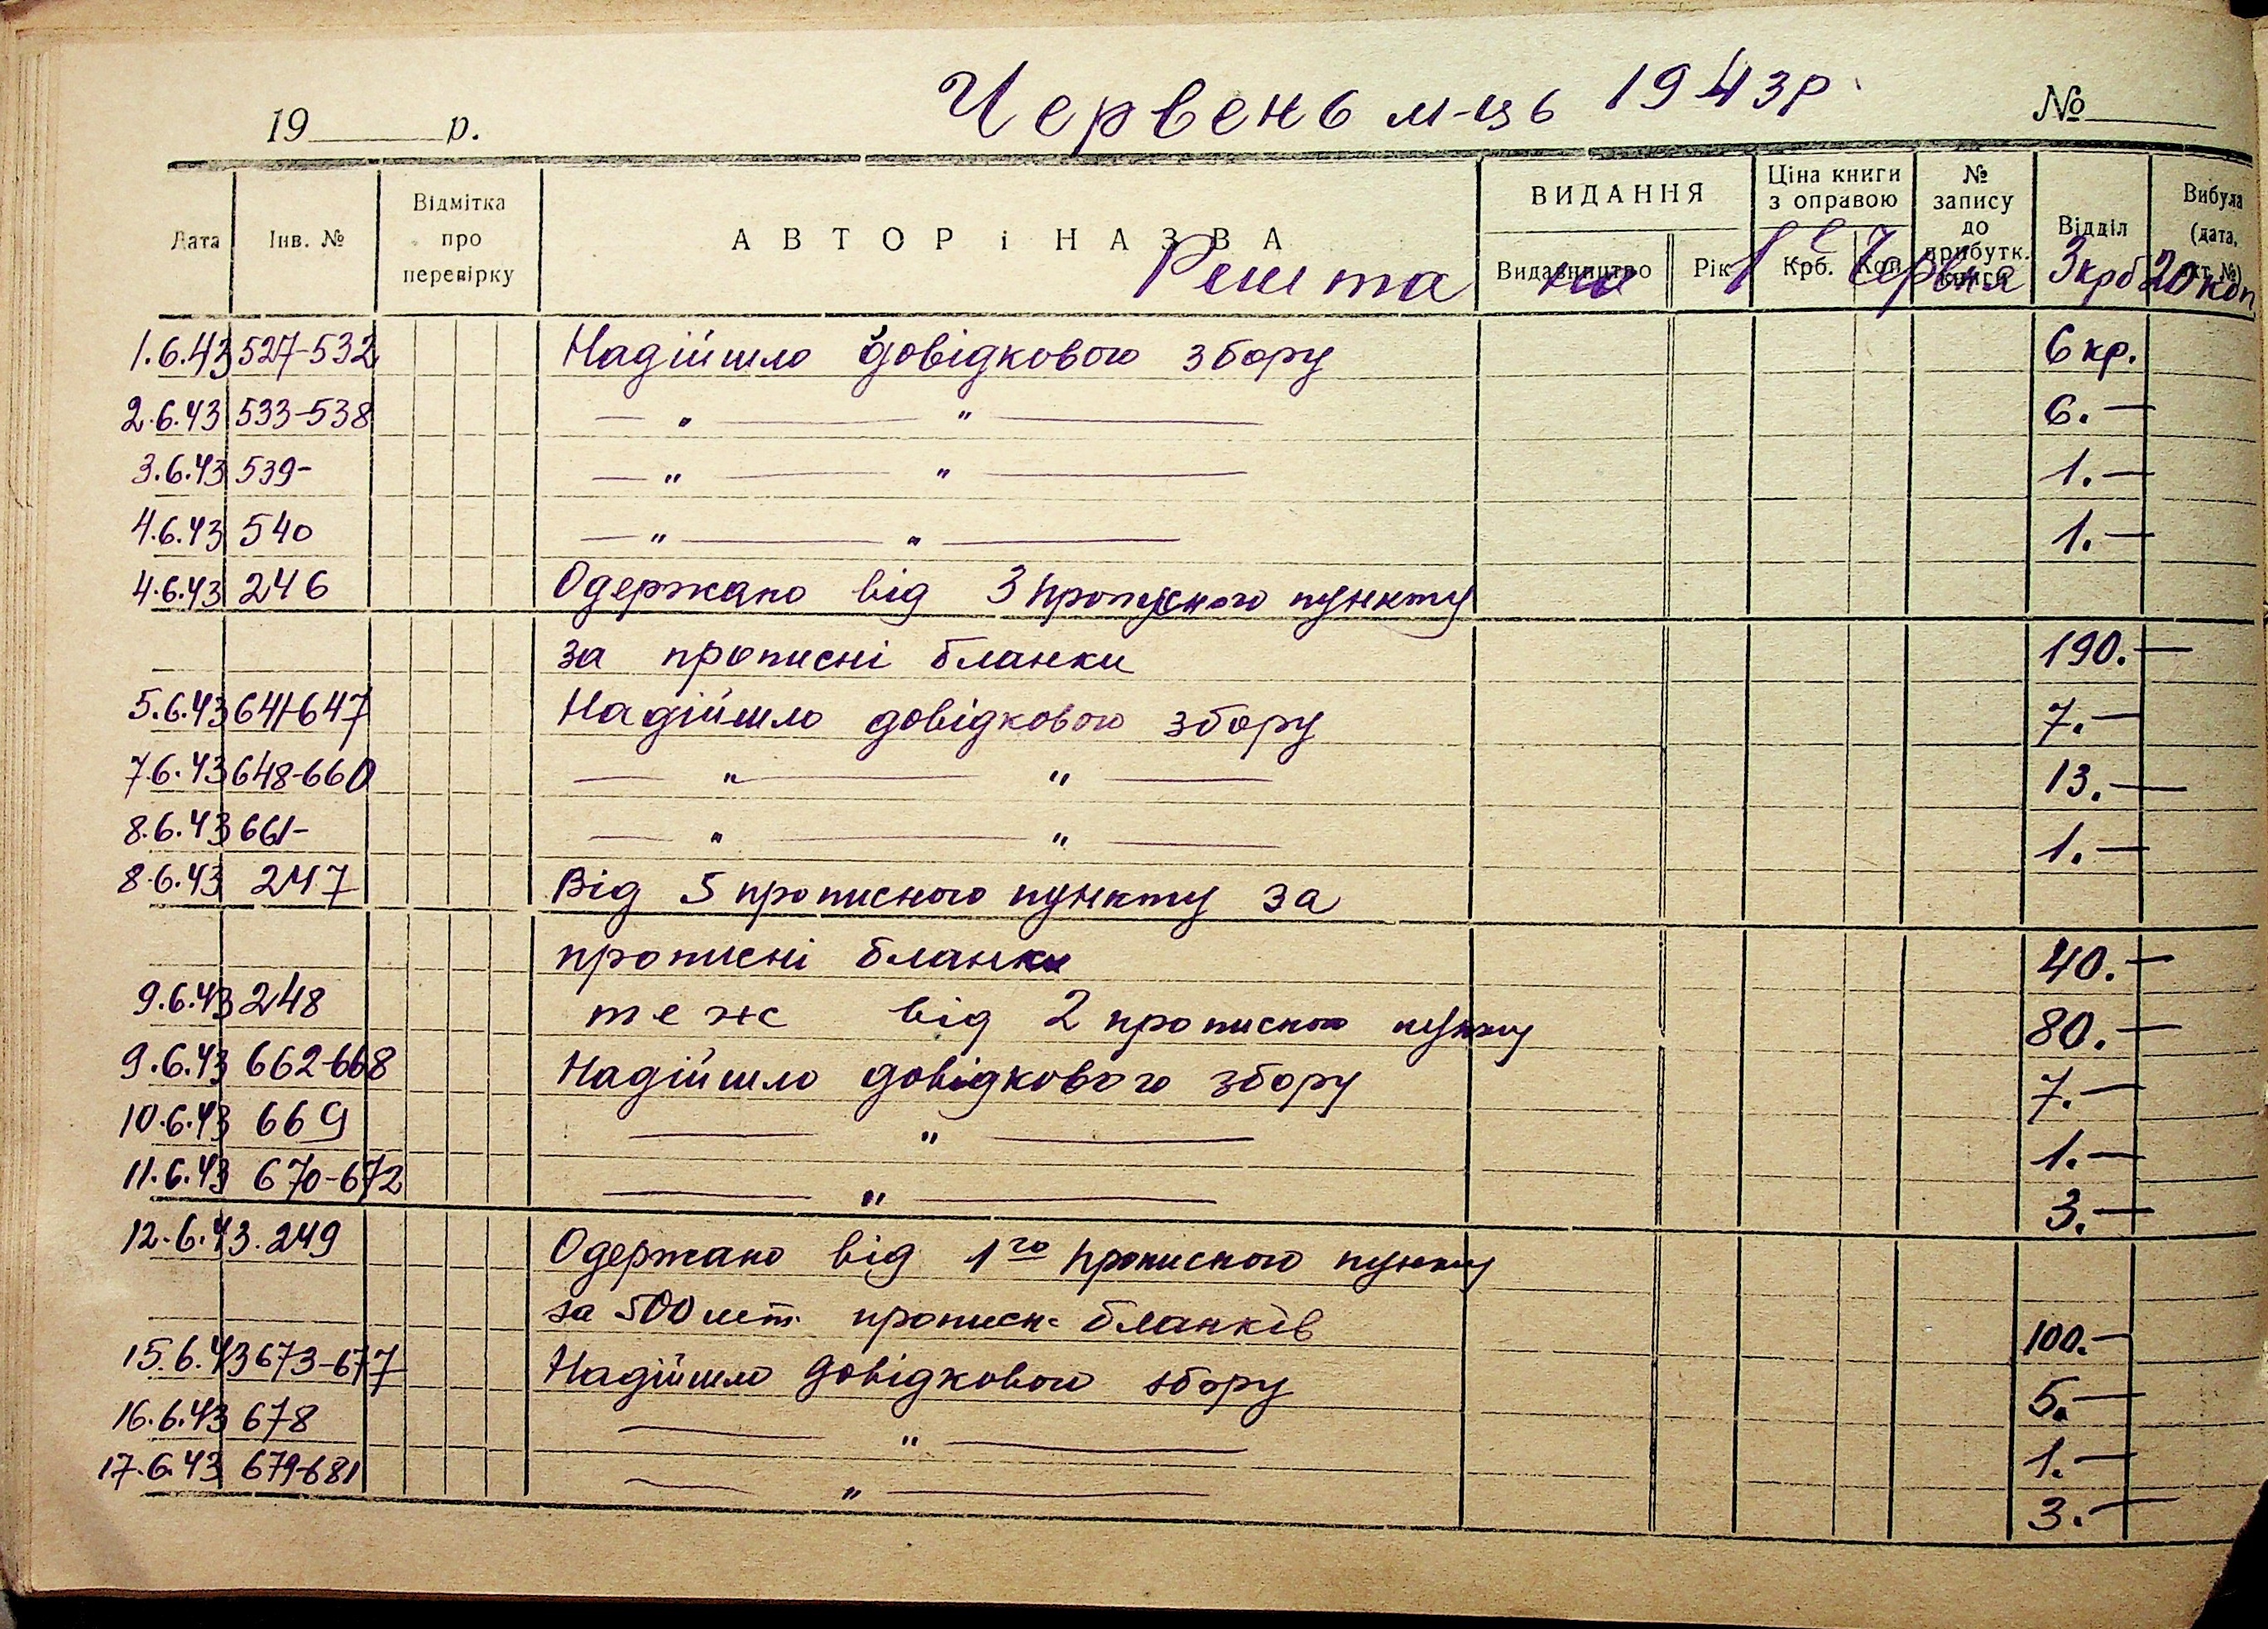 Червень м-ць 1943р.
19 р. №
Дата Інв. № Відмітка про перевірку АВТОР і НАЗВА ВИДАННЯ Видавництво Рік Ціна книги з оправою Крб. Коп. № запису до прибутк. книги Відділ Вибула (дата, акт №)
Решта на 1е Червня 3крб 20коп
1.6.43 527-532 Надійшло довідкового збору 6кр.
2.6.43 533-538 — „ — „ — 6.—
3.6.43 539- — „ — „ — 1.—
4.6.43 540 — „ — „ — 1.—
4.6.43 246 Одержано від 3 пропусного пункту
за прописні бланки 190.—
5.6.43 641-647 Надійшло довідкового збору 7.—
7.6.43 648-660 — „ — „ — 13.—
8.6.43 661- — „ — „ — 1.—
8.6.43 247 Від 5 прописного пункту за
прописні бланки 40.—
9.6.43 248 теж від 2 прописного пункту 80.—
9.6.43 662-668 Надійшло довідкового збору 7.—
10.6.43 669 — „ — 1.—
11.6.43 670-672 — „ — 3.—
12.6.43. 249 Одержано від 1го прописного пункту
за 500 шт. прописн. бланків 100.—
15.6.43 673-677 Надійшло довідкового збору 5.—
16.6.43 678 — „ — 1.—
17.6.43 679-681 — „ — 3.—